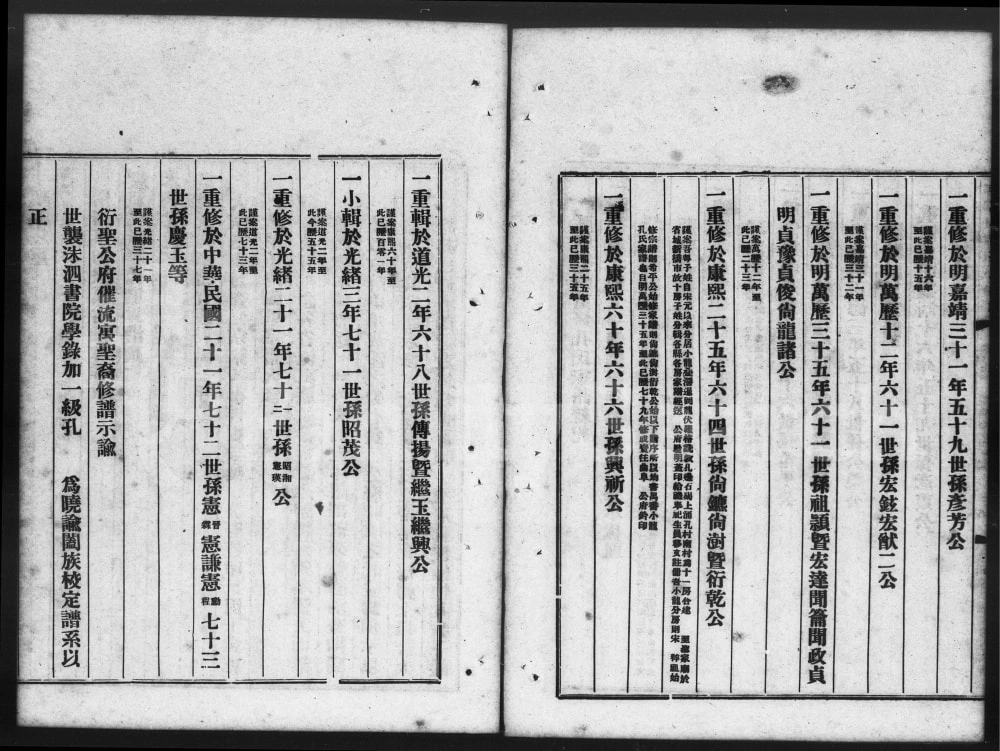 一重修於明嘉靖三十一年五十九世孫彥芳公
謹案嘉靖十六年
至此已歷十五年
一重修於明萬歷十二年六十一世孫宏鉉宏猷二公
謹案嘉靖三十一年
至此已歷三十二年
一重修於明萬歷三十五年六十一世孫祖潁暨宏達聞籥聞政貞
明貞豫貞俊尙龍諸公
謹案萬歷十二年至
此已歷二十三年
一重修於康熙二十五年六十四世孫尙鑣尙澍暨衍乾公
一重修於康熙六十年六十六世孫興祈公
謹案康熙二十五年
至此已歷三十五年
一重輯於道光二年六十八世孫傳揚暨繼玉繼興公
謹案康熙六十年至
此已歷百零一年
一小輯於光緖三年七十一世孫昭茂公
謹案道光二年至
此今歷五十五年
一重修於光緖二十一年七十一二世孫昭湘憲瑛公
謹案道光二年至
此已歷七十三年
一重修於中華民國二十一年七十二世孫憲晉霖憲謙憲勳程七十三
世孫慶玉等
謹案光緖二十一年
至此已歷三十七年
衍聖公府催流寓聖裔修譜示諭
世襲洙泗書院學錄加一級孔 爲曉諭闔族校定譜系以
正